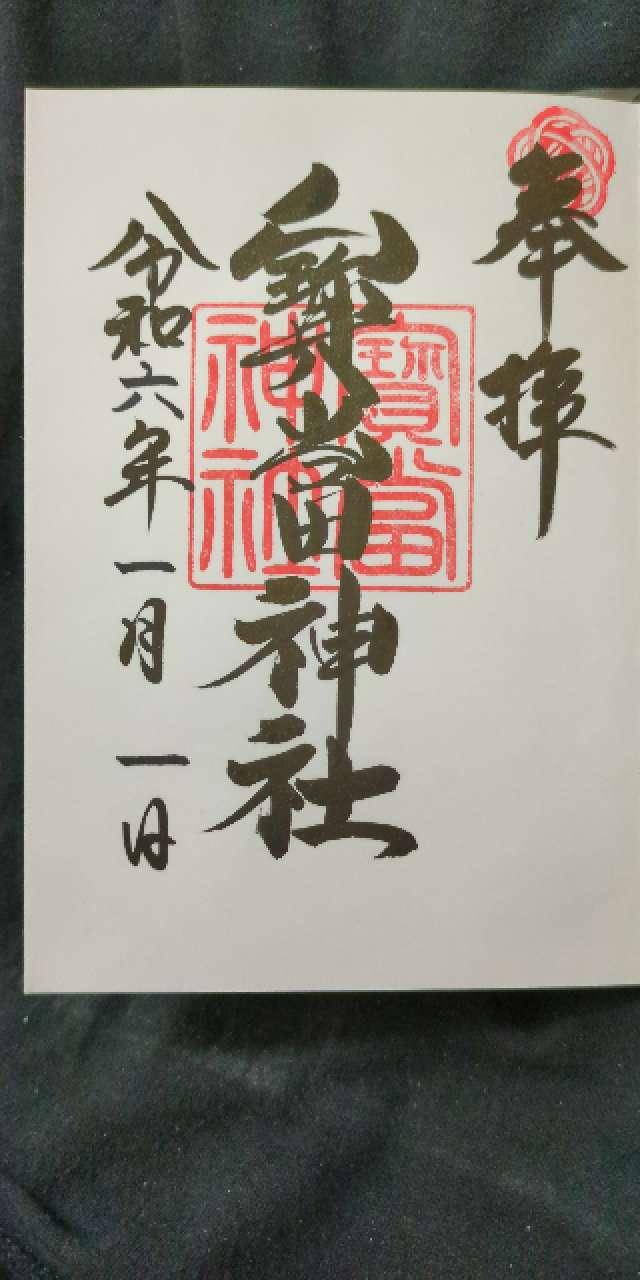 奉拝
寳當神社
寳當
神社
令和六年一月一日